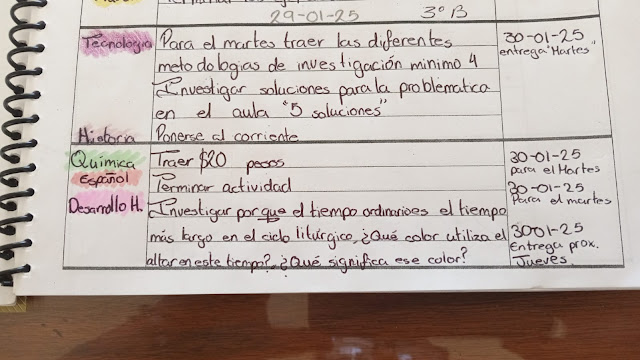 29-01-25 3° B
Tecnología Para el martes traer las diferentes 30-01-25
metodologias de investigación minimo 4 entrega "Martes"
Investigar soluciones para la problematica
en el aula "5 soluciones"
Historia Ponerse al corriente
Química Traer $20 pesos 30-01-25
para el Martes
Español Terminar actividad 30-01-25
Para el martes
Desarrollo H. Investigar por que el tiempo ordinario es el tiempo
más largo en el ciclo litúrgico, ¿Qué color utiliza el 3001-25
altar en este tiempo?, ¿Qué significa ese color? Entrega prox.
Jueves.